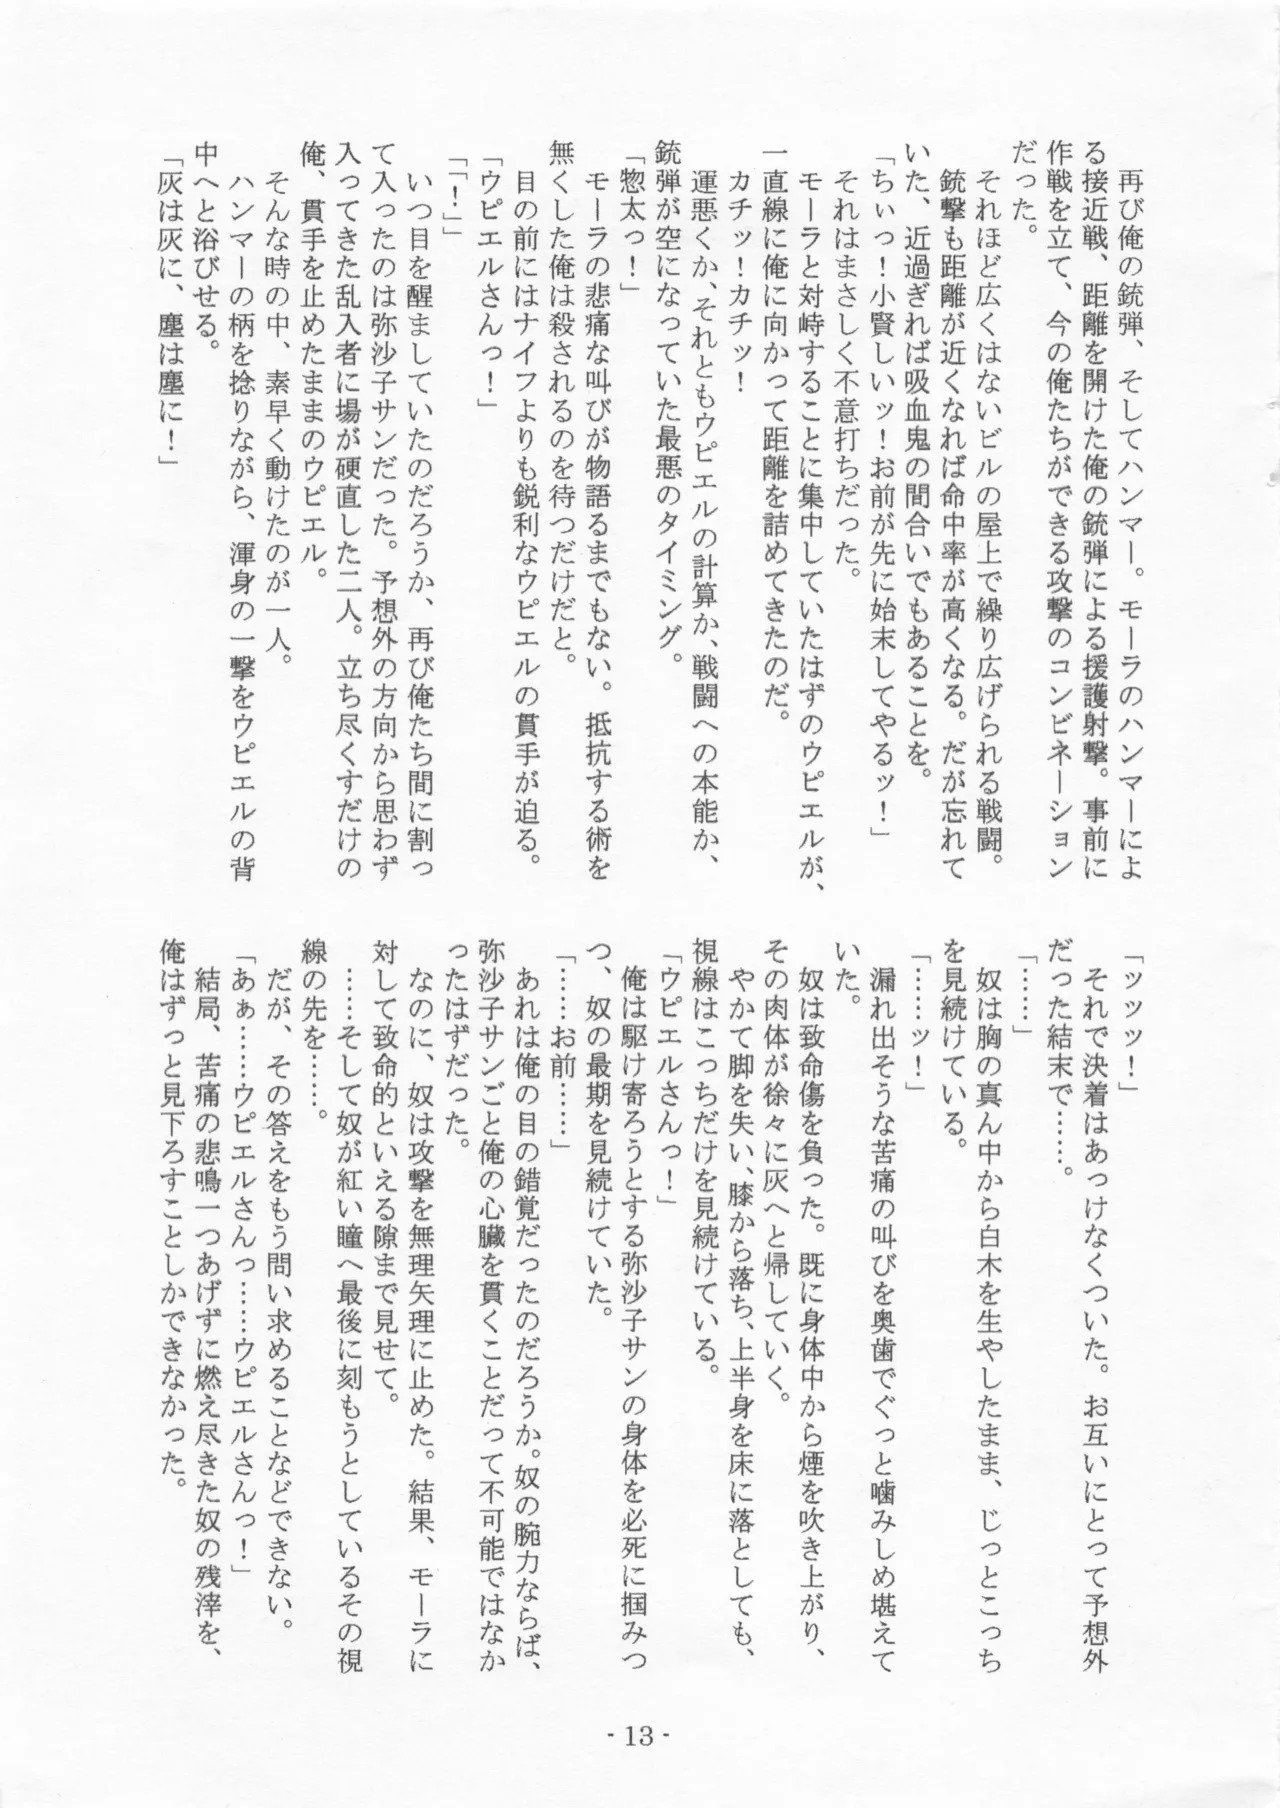 再び俺の銃弾、そしてハンマー。モーラのハンマーによ
る接近戦、距離を開けた俺の銃弾による援護射撃。事前に
作戦を立て、今の俺たちができる攻撃のコンビネーション
だった。
それほど広くはないビルの屋上で繰り広げられる戦闘。
銃撃も距離が近くなれば命中率が高くなる。だが忘れて
いた、近過ぎれば吸血鬼の間合いでもあることを。
「ちぃっ！小賢しいッ！お前が先に始末してやるッ！」
それはまさしく不意打ちだった。
モーラと対峙することに集中していたはずのウピエルが、
一直線に俺に向かって距離を詰めてきたのだ。
カチッ！カチッ！
運悪くか、それともウピエルの計算か、戦闘への本能か、
銃弾が空になっていた最悪のタイミング。
「惣太っ！」
モーラの悲痛な叫びが物語るまでもない。抵抗する術を
無くした俺は殺されるのを待つだけだと。
目の前にはナイフよりも鋭利なウピエルの貫手が迫る。
「ウピエルさんっ！」
「「！」」
いつ目を醒ましていたのだろうか、再び俺たち間に割っ
て入ったのは弥沙子サンだった。予想外の方向から思わず
入ってきた乱入者に場が硬直した二人。立ち尽くすだけの
俺、貫手を止めたままのウピエル。
そんな時の中、素早く動けたのが一人。
ハンマーの柄を捻りながら、渾身の一撃をウピエルの背
中へと浴びせる。
「灰は灰に、塵は塵に！」
「ッッッ！」
それで決着はあっけなくついた。お互いにとって予想外
だった結末で……。
「……」
奴は胸の真ん中から白木を生やしたまま、じっとこっち
を見続けている。
「……ッ！」
漏れ出そうな苦痛の叫びを奥歯でぐっと噛みしめ堪えて
いた。
奴は致命傷を負った。既に身体中から煙を吹き上がり、
その肉体が徐々に灰へと帰していく。
やがて脚を失い、膝から落ち、上半身を床に落としても、
視線はこっちだけを見続けている。
「ウピエルさんっ！」
俺は駆け寄ろうとする弥沙子サンの身体を必死に掴みつ
つ、奴の最期を見続けていた。
「……お前……」
あれは俺の目の錯覚だったのだろうか。奴の腕力ならば、
弥沙子サンごと俺の心臓を貫くことだって不可能ではなか
ったはずだった。
なのに、奴は攻撃を無理矢理に止めた。結果、モーラに
対して致命的といえる隙まで見せて。
……そして奴が紅い瞳へ最後に刻もうとしているその視
線の先を……。
だが、その答えをもう問い求めることなどできない。
「あぁ……ウピエルさんっ……ウピエルさんっ！」
結局、苦痛の悲鳴一つあげずに燃え尽きた奴の残滓を、
俺はずっと見下ろすことしかできなかった。
- 13 -